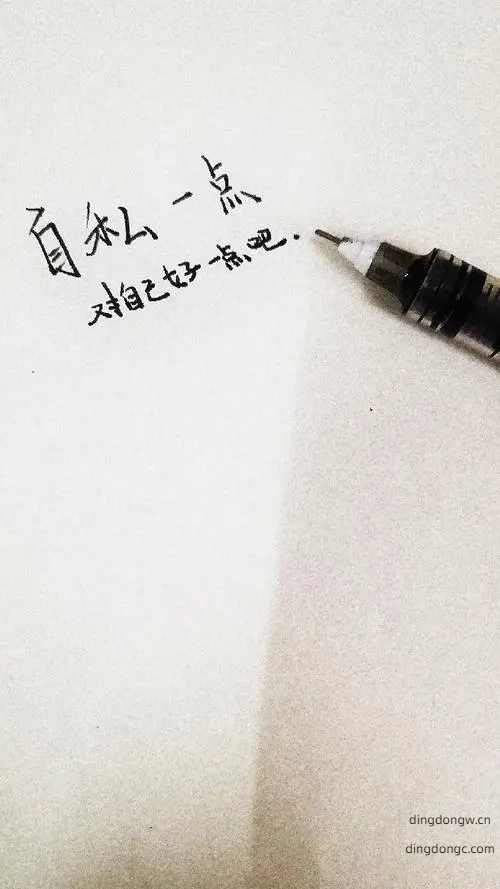 自私一点
对自己好一点吧.
dingdongw.cn
dingdongc.com